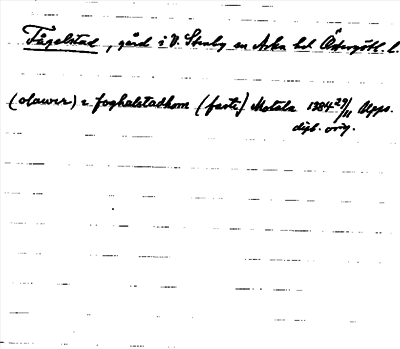 Fågelstad, gård i V. Stenby sn Aska hd Östergötl. l.
(olawer) i foghalstadhom (faste) Motala 1384 29/11 Upps.
dipl. orig.